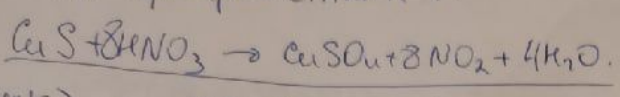 CuS+8HNO₃ → CuSO₄+8NO₂+4H₂O.